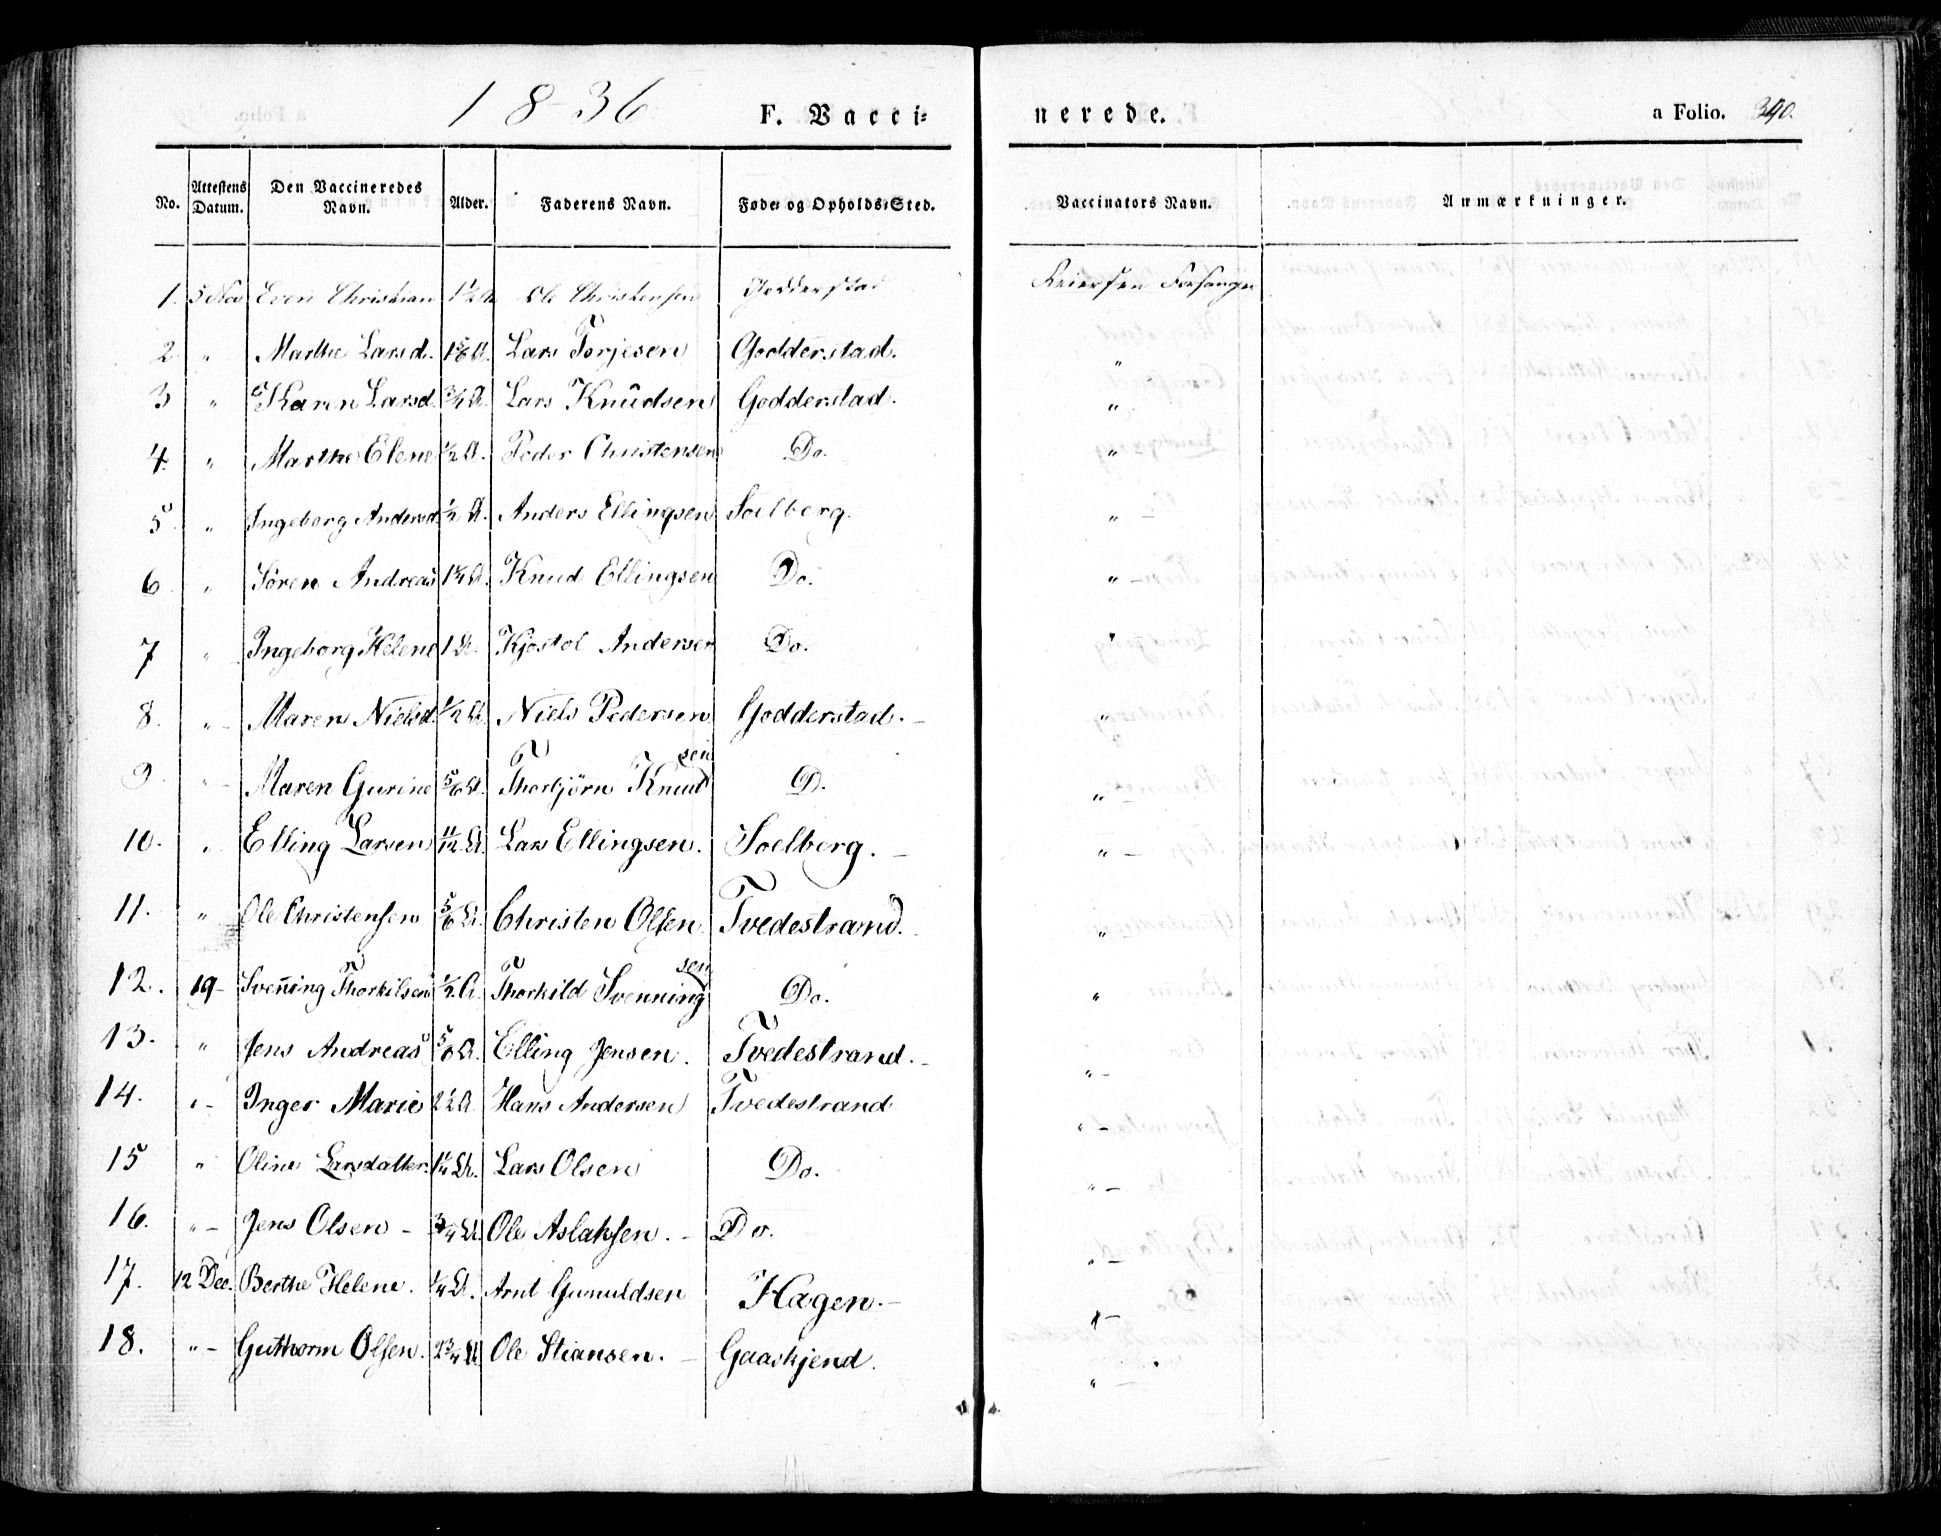 1836 F. Vacci= nerede. a Folio. 340.
No. Attestens Datum. Den Vaccineredes Navn. Alder. Faderens Navn. Føde= og Opholds=Sted. Vaccinators Navn. Anmærkninger.
1. 5 Nov Even Christian 1½ A Ole Christensen Godderstad Reiersen
2 " Marthe Larsd. 1 5/6 A. Lars Torjesen Godderstad. "
3 " Karen Larsd 3/4 A. Lars Knudsen Godderstad. "
4. " Marthe Elene ½ A. Peder Christensen Do. "
5. " Ingeborg Andersd. ½ A. Anders Ellingsen Soelberg. "
6 " Sören Andreas 1¼ A. Knud Ellingsen Do. " –
7 " Ingeborg Helene 1 A. Kjøstol Andersen Do. "
8. " – Maren Nielsd. ½ A. Niels Pedersen Godderstad. – "
9 " – Maren Gurine 5/6 A. Thorbjørn Knudsen D. " –
10. " Elling Larsen 11/12 A. Lars Ellingsen. Soelberg. – " –
11. " Ole Christensen 5/6 A. Christen Olsen. Tvedestrand. "
12. 19 – Svenning Thorkilsen ½ A. Thorkild Svenningsen Do. "
13. " Jens Andreas 5/6 A. Elling Jensen. Tvedestrand. – " –
14. " – Inger Marie 2½ A. Hans Andersen Tvedestrand " –
15 " Oline Larsdatter. 1¼ A. Lars Olsen Do. " –
16. " – Jens Olsen – 3/4 A. Ole Aslaksen. – Do. " –
17. 12 Dec. Berthe Helene. ¼ A. Arnt Gunuldsen Hagen. – " –
18. " – Guthorm Olsen. 2¾ A. Ole Stiansen. – Gaaskjend. " –